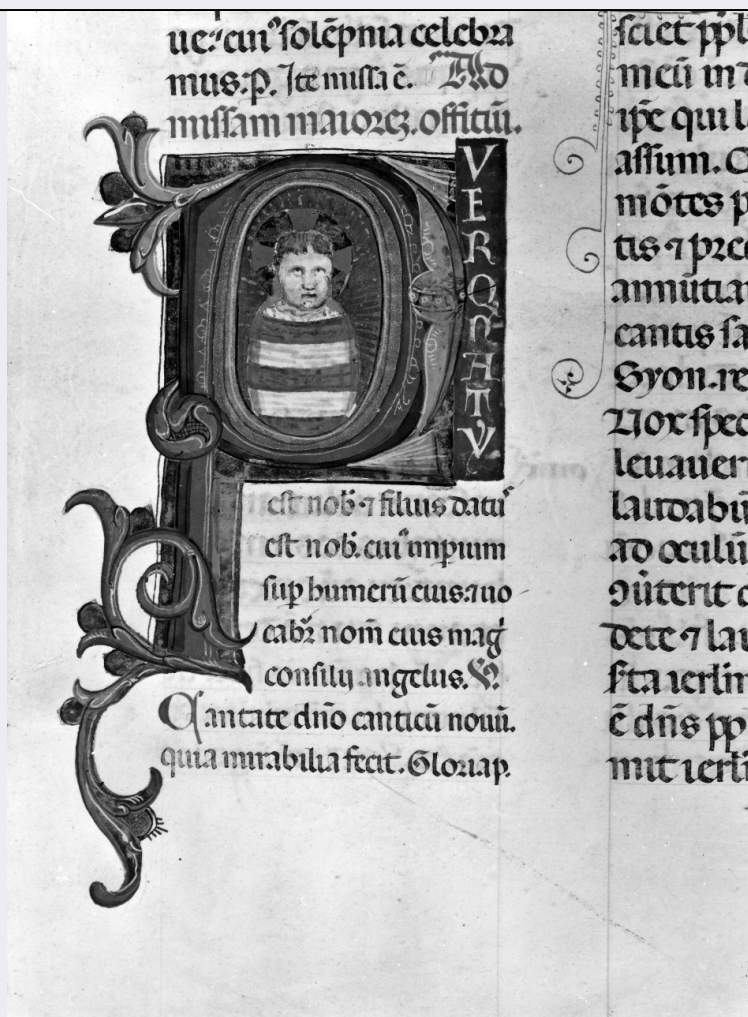 ue: cui᷒ solēpnia celebra
mus. P. Ite missa ē. Ad
missam maiorē. offitiū.
P
VER
Q
NATV
est nob̄ ⁊ filius datu᷒
est nob̄. cui᷒ imp̄ium
sup humerū eius: ⁊ uo
cabr̄ nom̄ eius maḡ
consilij angelus. V̄.
Cantate dn̄o canticū nouū.
quia mirabilia fecit. Gloria p.
sciet pp̄l
meū in
ip̄e qui l
assum. Q
mōtes p
tis ⁊ pre
annūtia
cantis sa
Syon. re
Uox spec
leuauer
laudabū
ad oculū
ꝯuterit
dete ⁊ lau
s̄ta ierl̄m
ē dn̄s pp̄
mit ierl̄